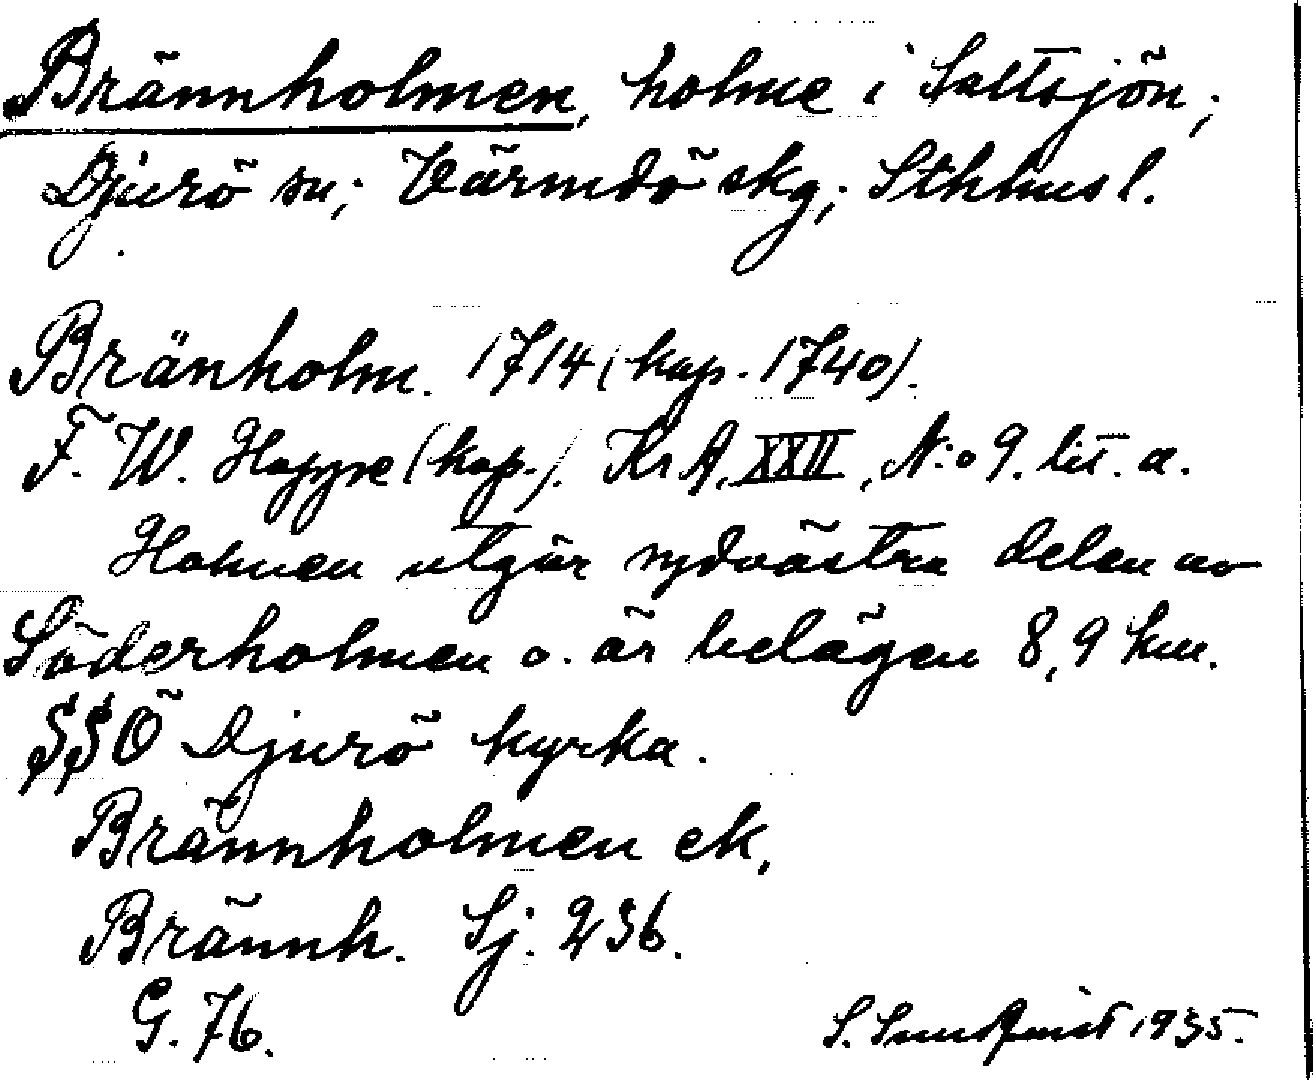 Brännholmen, holme i Saltsjön;
Djurö sn; Värmdö skg; Sthlms l.
Bränholm. 1714 (kap. 1740).
F. W. Hoppe (kop.). KrA, XXII, N:o 9. lit. a.
Holmen utgör sydvästra delen av
Söderholmen o. är belägen 8,9 km.
SSO Djurö kyrka.
Brännholmen ek.
Brännh. Sj. 236.
G. 76.
S. Sundqvist 1935.